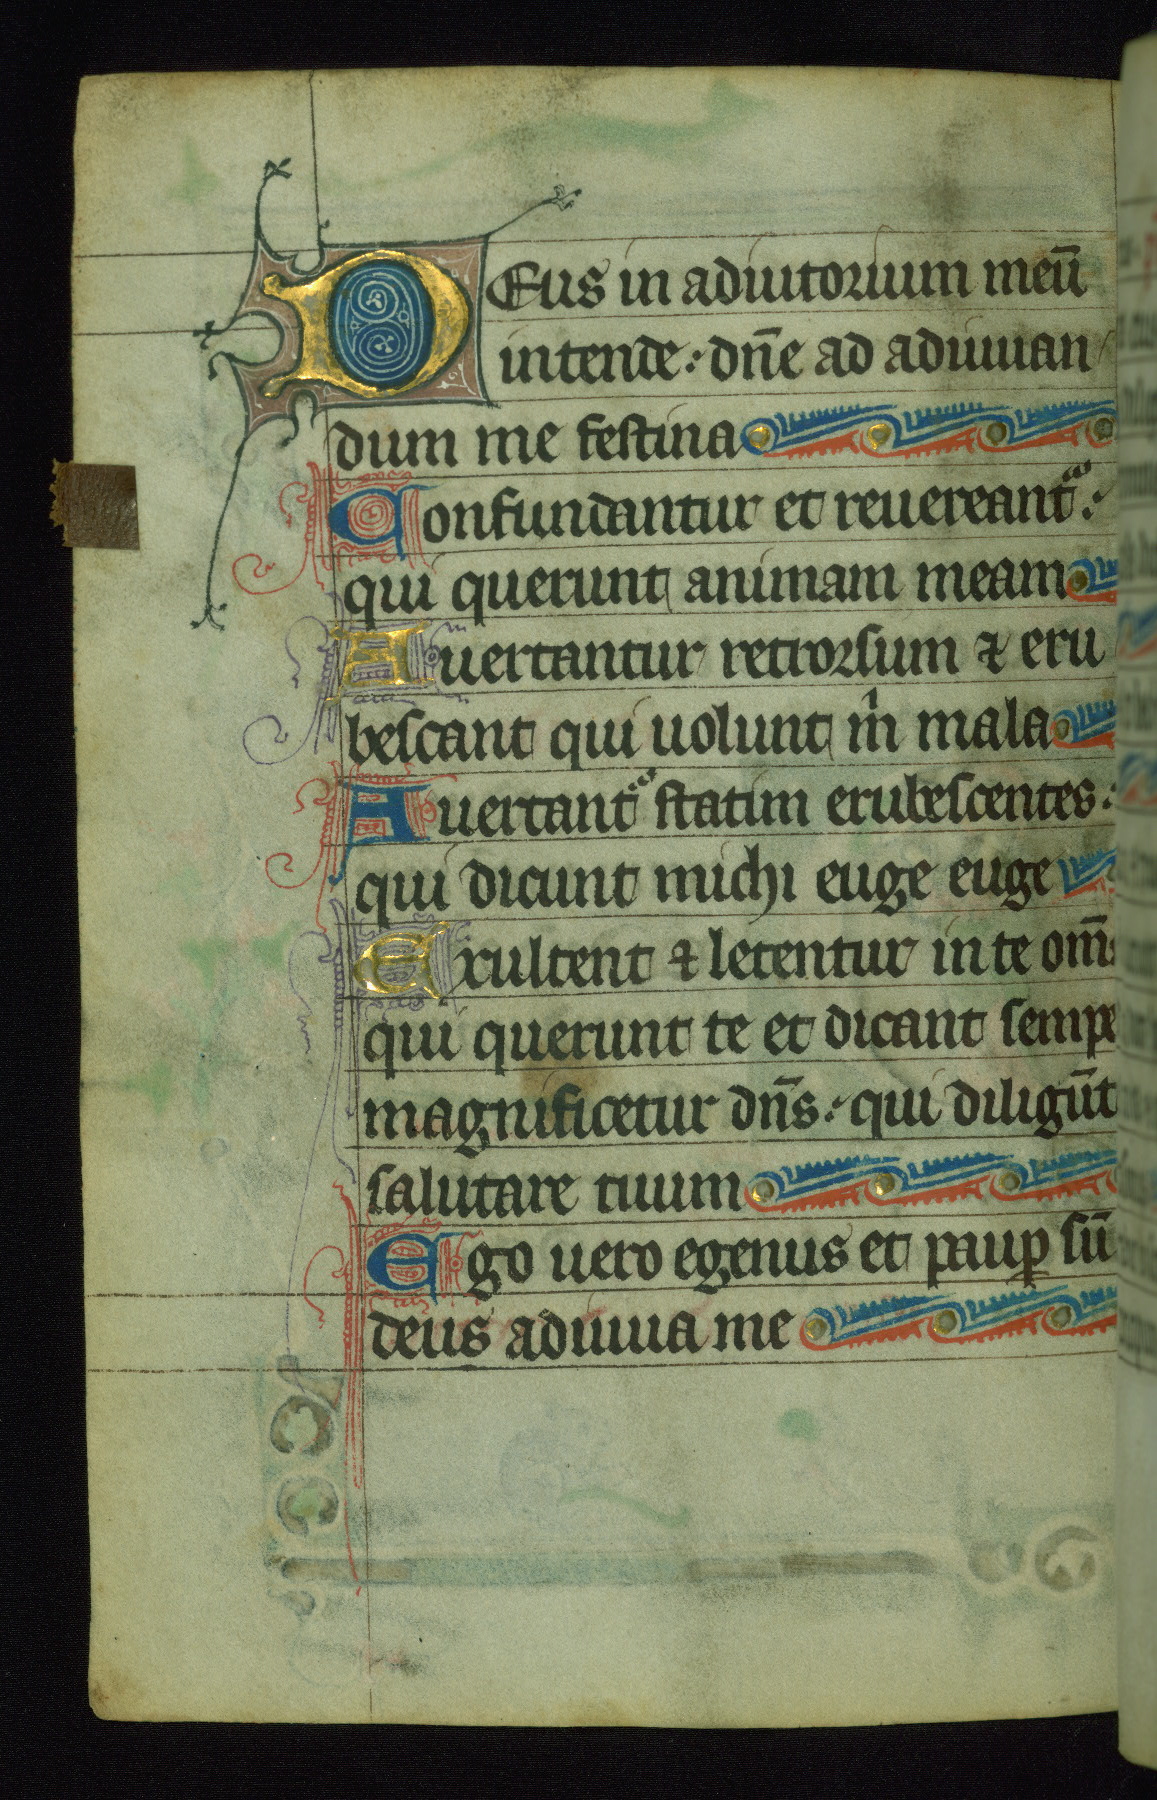 Deus in adiutorium meū
intende: dn̄e ad adiuuan
dum me festina
Confundantur et reuereant᷑:
qui querunt animam meam
Auertantur retrorsum ⁊ eru
bescant qui uolunt m̍ mala
Auertant᷑ statim erubescentes:
qui dicunt michi euge euge
Exultent ⁊ letentur in te om̄s
qui querunt te et dicant sempe
magnificetur dn̄s: qui diligūt
salutare tuum
Ego uero egenus et paup̱ sū
deus adiuua me